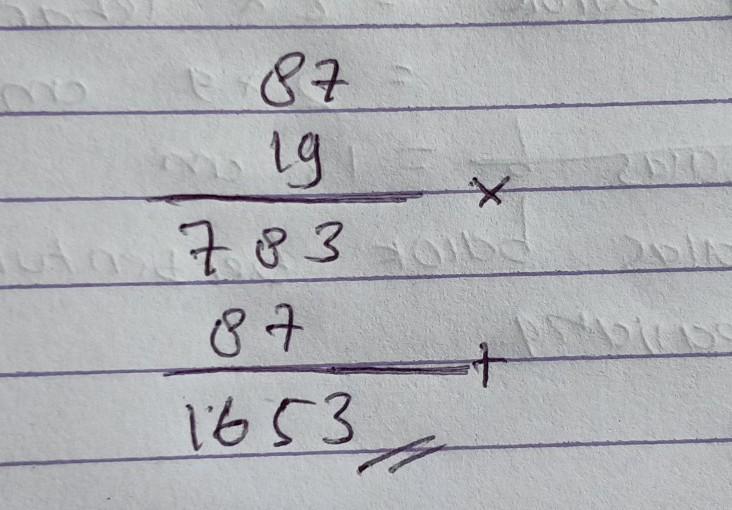 87
19
×
783
87
+
1653